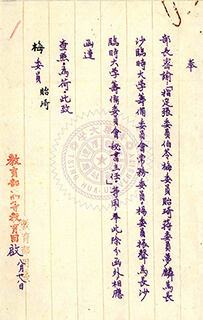 奉
部長密諭「指定張委員伯苓梅委員貽琦蔣委員夢麟為長
沙臨時大學籌備委員會常務委員楊委員振聲為長沙
臨時大学籌備委員會秘書主任」等因奉此除分函外相應
函達
查照為荷此致
梅委員 貽琦
教育部高等教育司啟 八月廿八日